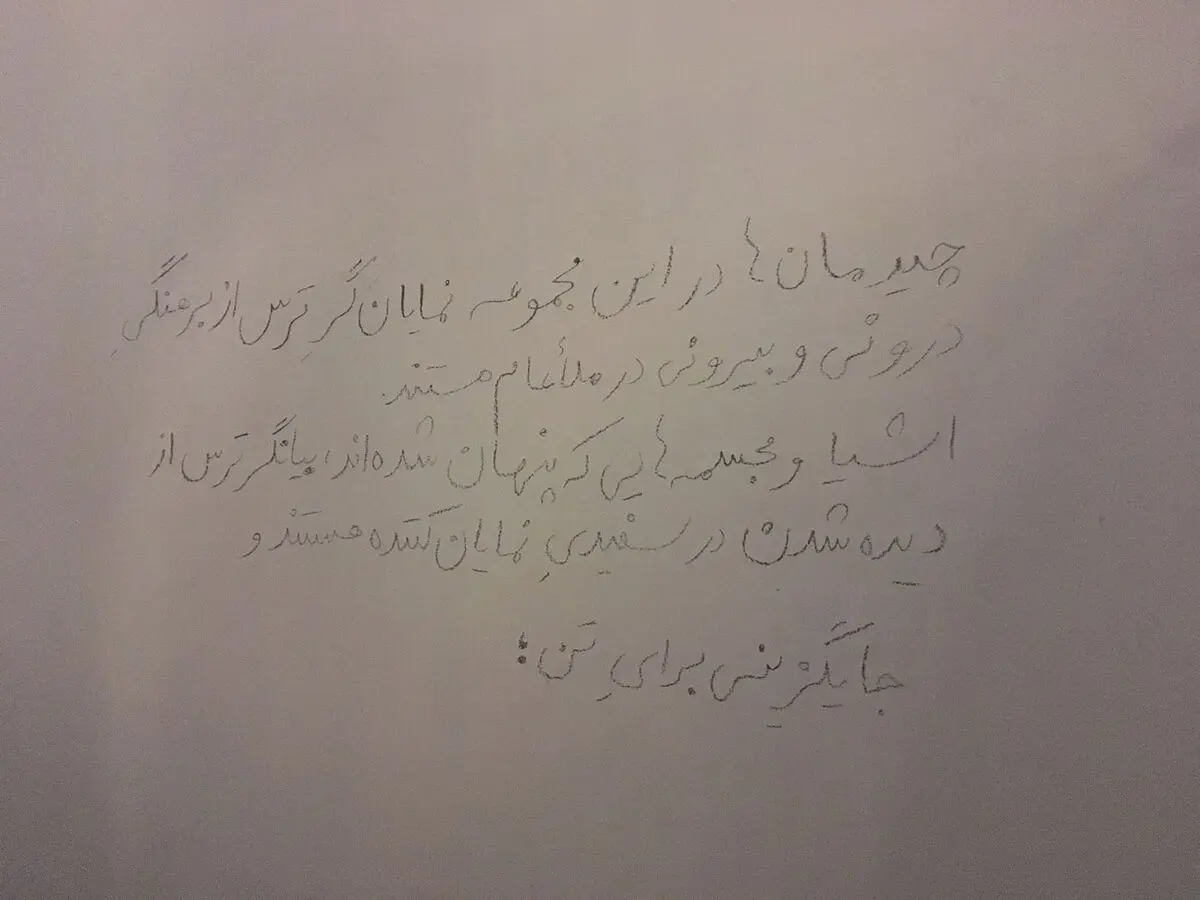 چیدمان‌ها در این مجموعه نمایان‌گرِ ترس از برهنگیِ
درونی و بیرونی در ملأعام هستند.
اشیا و مجسمه‌هایی که پنهان شده‌اند، بیانگر ترس از
دیده شدن در سفیدیِ نمایان‌کننده هستند و
جایگزینی برایِ تَن: